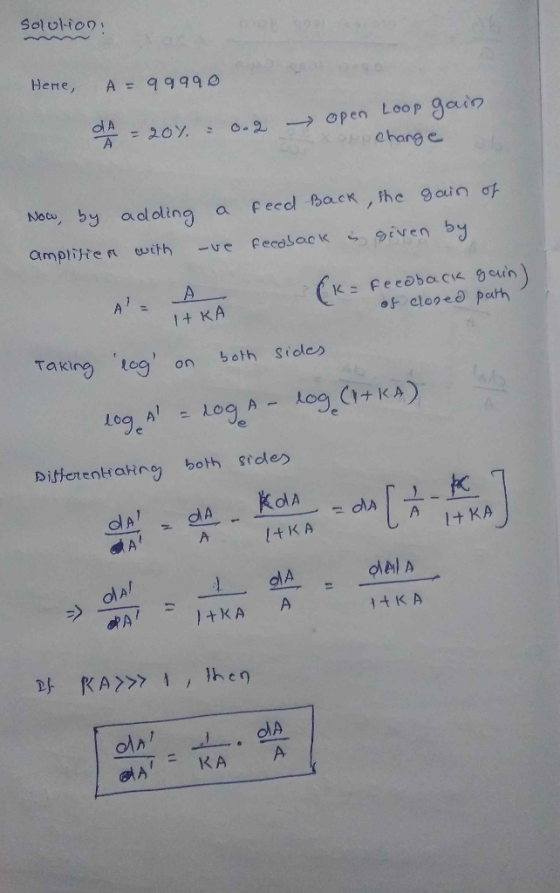 Solution:
Here, A = 99990
dA/A = 20% = 0.2 → open Loop gain
change
Now, by adding a Feed Back, the gain of
amplifier with -ve feedback is given by
A' = A/(1+KA) (K = Feedback gain
of closed path)
Taking 'log' on both sides
logₑA' = logₑA - logₑ(1+KA)
Differentiating both sides
dA'/A' = dA/A - KdA/(1+KA) = dA[1/A - K/(1+KA)]
⇒ dA'/A' = 1/(1+KA) dA/A = dA/A/(1+KA)
If KA>>> 1, then
dA'/A' = 1/KA · dA/A